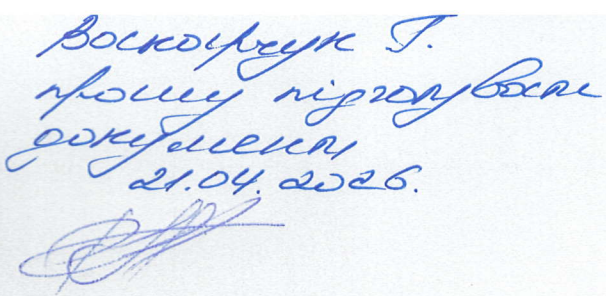 Воскорчук Т.
прошу підготувати
документи
21.04.2026.